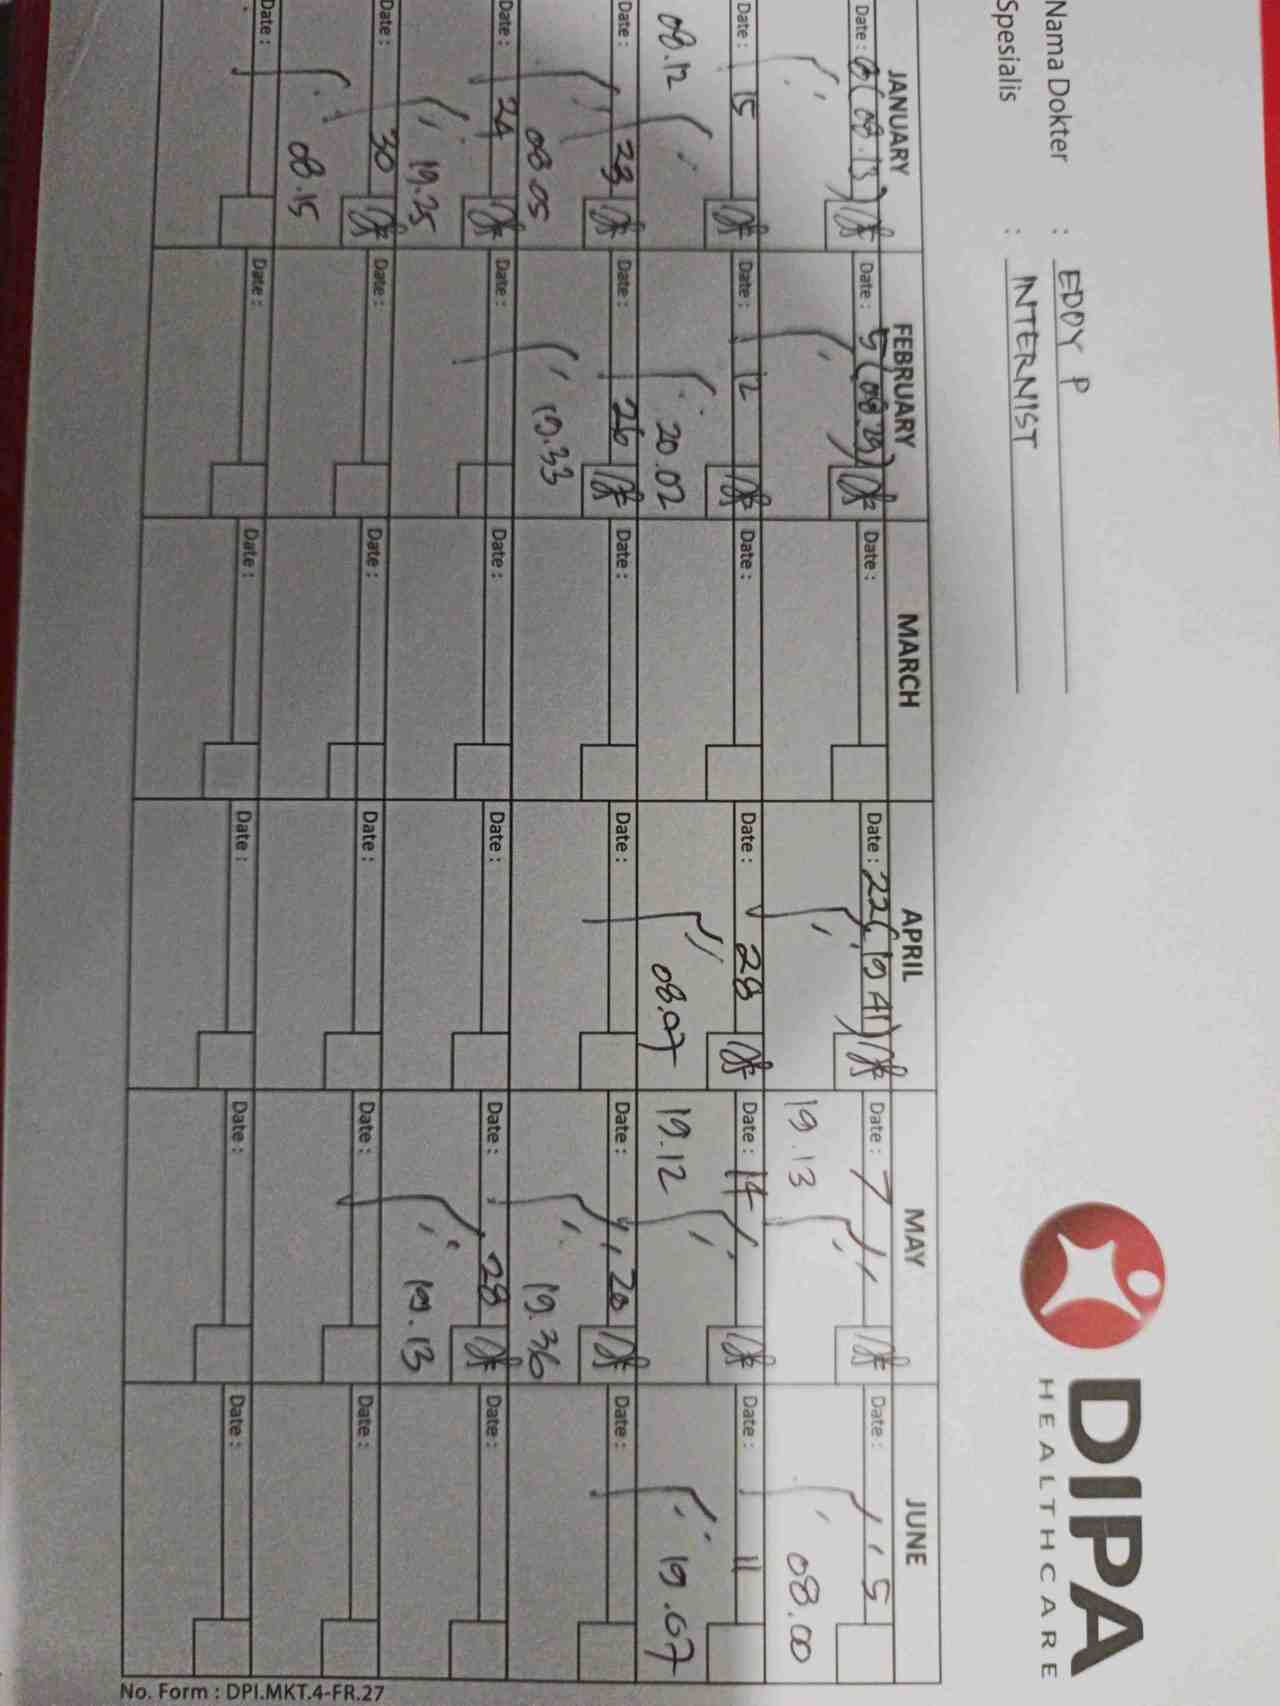 DIPA
HEALTHCARE
Nama Dokter : EDDY P
Spesialis : INTERNIST
JANUARY FEBRUARY MARCH APRIL MAY JUNE
Date : (08.13) Date : 5 (08.29) Date : Date : 22 (19.41) Date : 7 Date : 5
19.13 08.00
Date : 15 Date : 12 Date : Date : 28 Date : 14 Date : 11
08.12 20.02 08.07 19.12 19.07
Date : 23 Date : 26 Date : Date : Date : 20 Date :
08.05 19.33 19.36
Date : 24 Date : Date : Date : Date : 28 Date :
19.25 19.13
Date : 30 Date : Date : Date : Date : Date :
08.15
Date : Date : Date : Date : Date : Date :
No. Form : DPI.MKT.4-FR.27